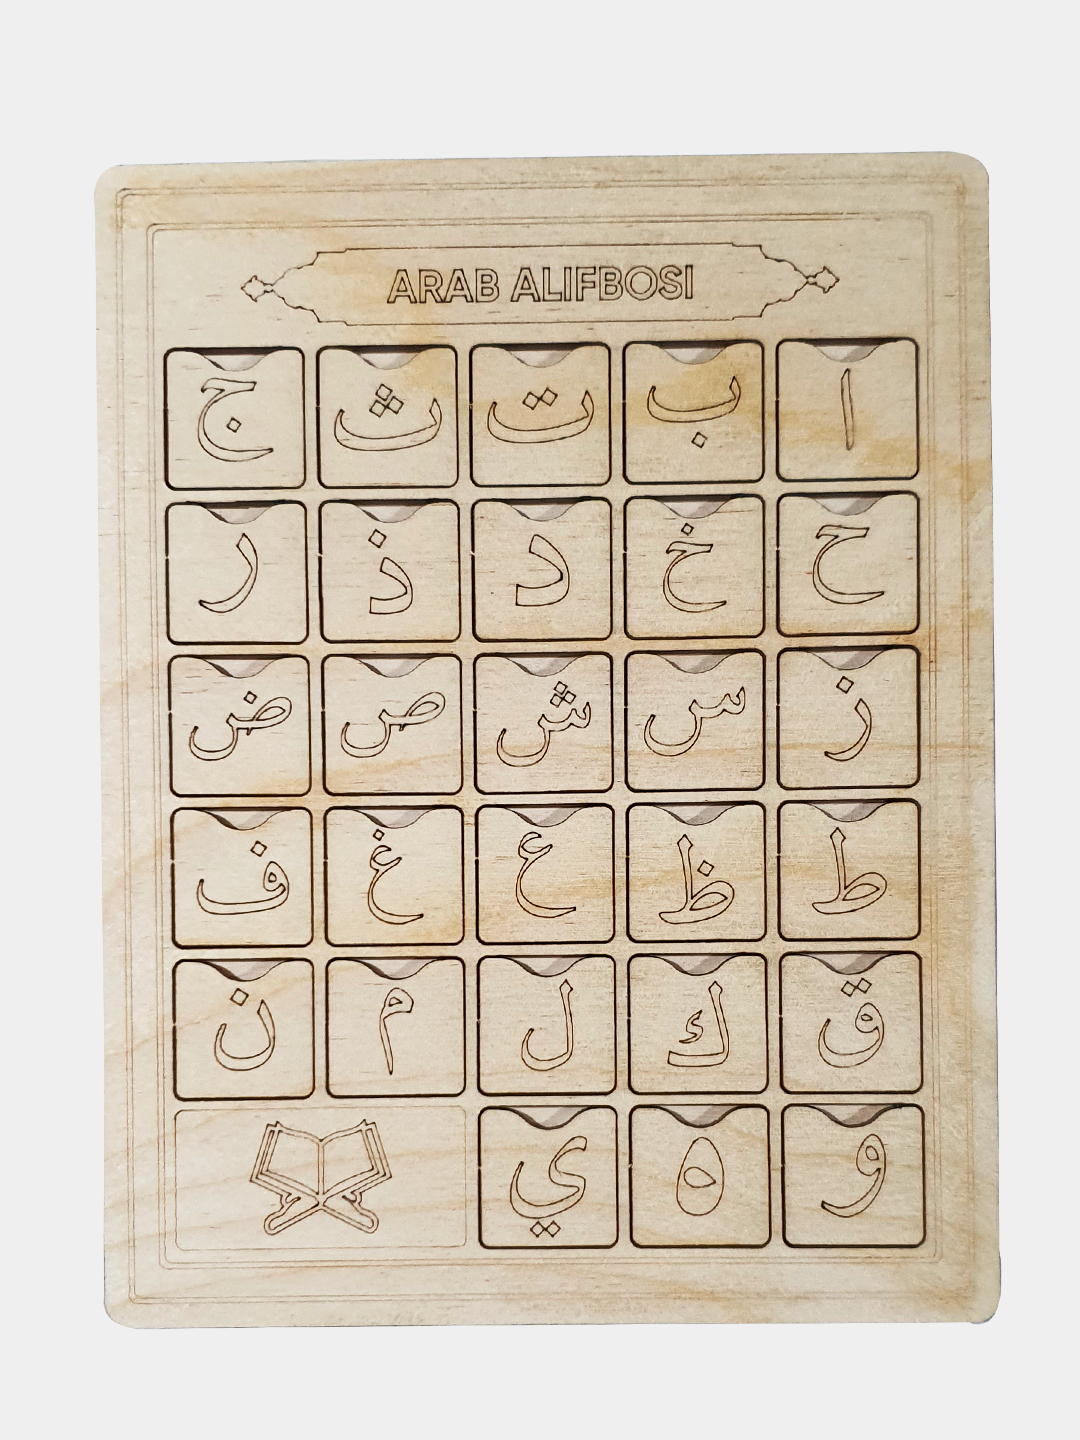 ARAB ALIFBOSI
ا ب ت ث ج
ح خ د ذ ر
ز س ش ص ض
ط ظ ع غ ف
ق ك ل م ن
و ه ي